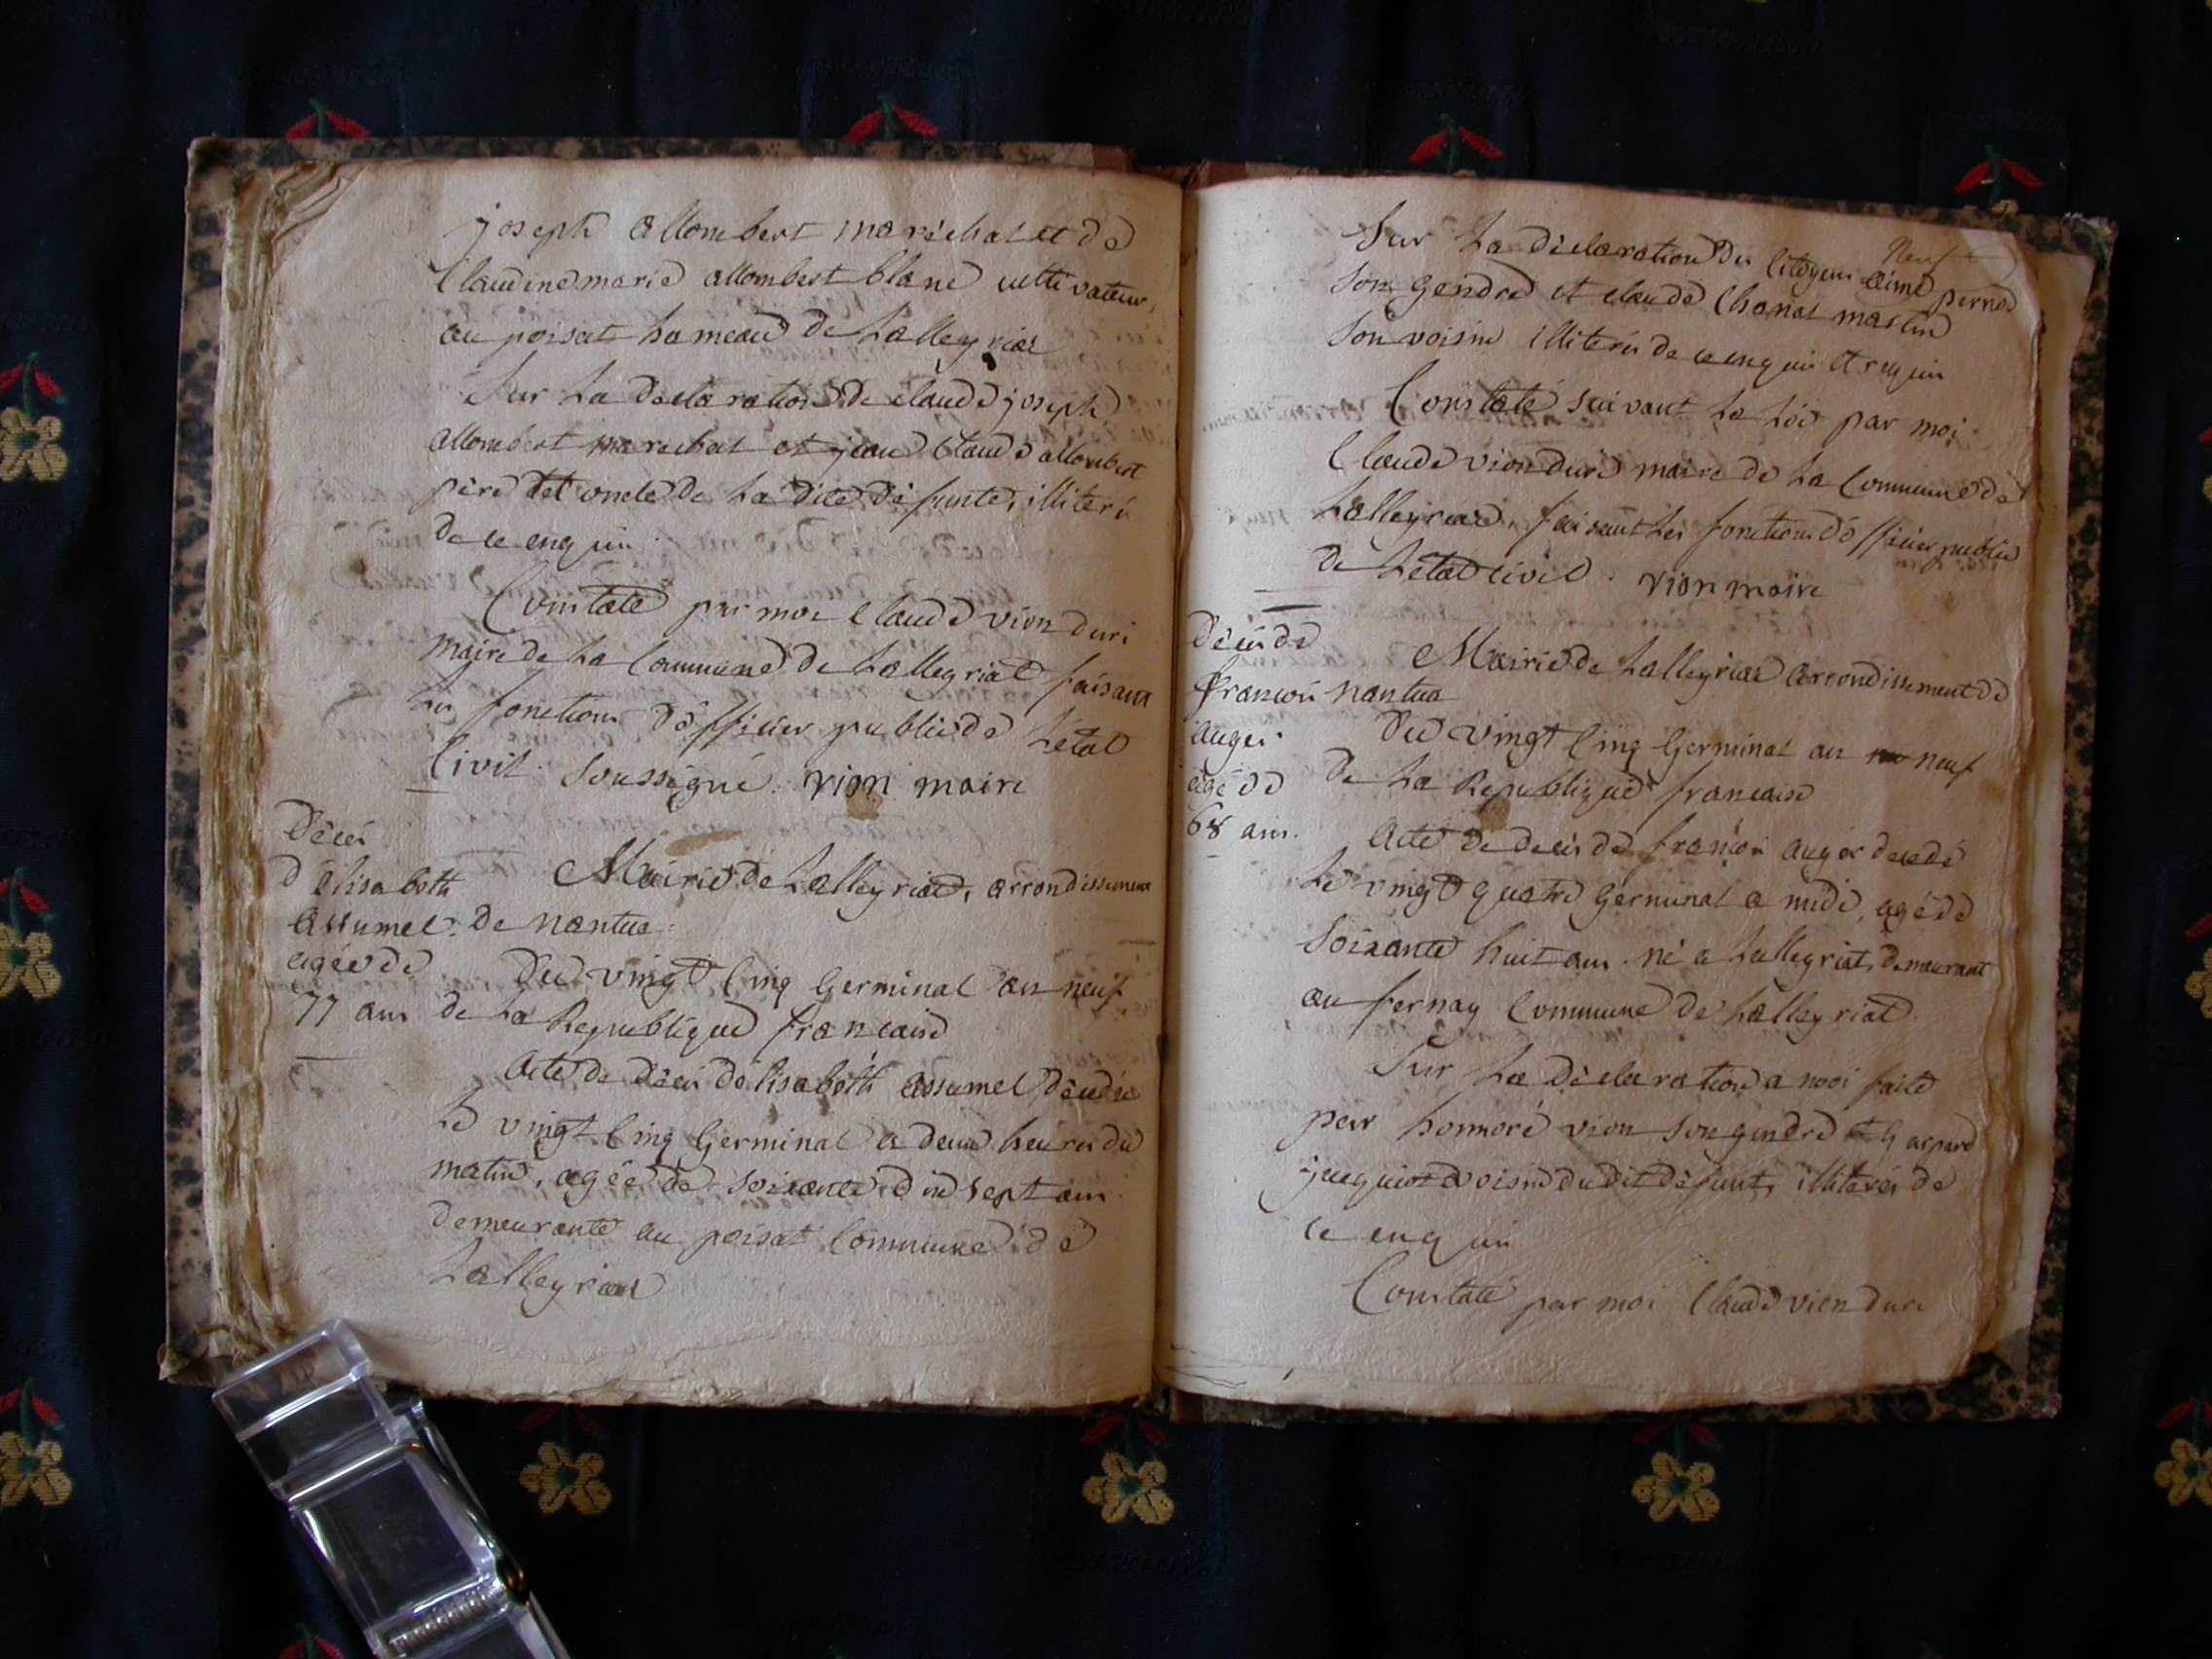 joseph allombert maréchal et de
Claudine marie allombert blanc cultivateur,
au poisat hameau de Lalleyriat
Sur La déclaration de claude joseph
allombert marechal et jean Claude allombert
père et oncle de La dite défunte, illiteré
de ce enquis
Constaté par moi Claude vion duri
maire de La Commune de Lalleyriat faisant
Les fonctions d'officier public de L'état
Civil soussigné. vion maire
Décès
d'élisabeth
assumel.
agée de
77 ans
Mairie de Lalleyriat, arrondissement
de nantua.
Du vingt Cinq Germinal an neuf
de La Republique francaise
Acte de décès d'élisabeth assumel décédée
Le vingt Cinq Germinal a deux heures du
matin, agée de soixante dix sept ans
demeurante au poisat Commune de
Lalleyriat
Neuf
Sur La déclaration des Citoyens aimé perrod
Son Gendre et claude Chanal martin
Son voisin illiterés de ce enquis et requis
Constaté suivant La Loi par moi
Claude vion duri maire de La Commune de
Lalleyriat, faisant Les fonctions d'officier public
de L'état civil. vion maire
Décès de
francois
auger
agé de
68 ans.
Mairie de Lalleyriat arrondissement de
nantua
Du vingt Cinq Germinal an neuf
de La Republique francaise
Acte de decès de françois auger decedé
Le vingt quatre Germinal a midi, agé de
Soixante huit ans né a Lalleyriat, demeurant
au fernay Commune de Lalleyriat.
Sur La déclaration a moi faite
par honnoré vion son gendre et gaspard
jacquiot voisin du dit défunt, illiterés de
ce enquis
Constaté par moi Claude vion duri